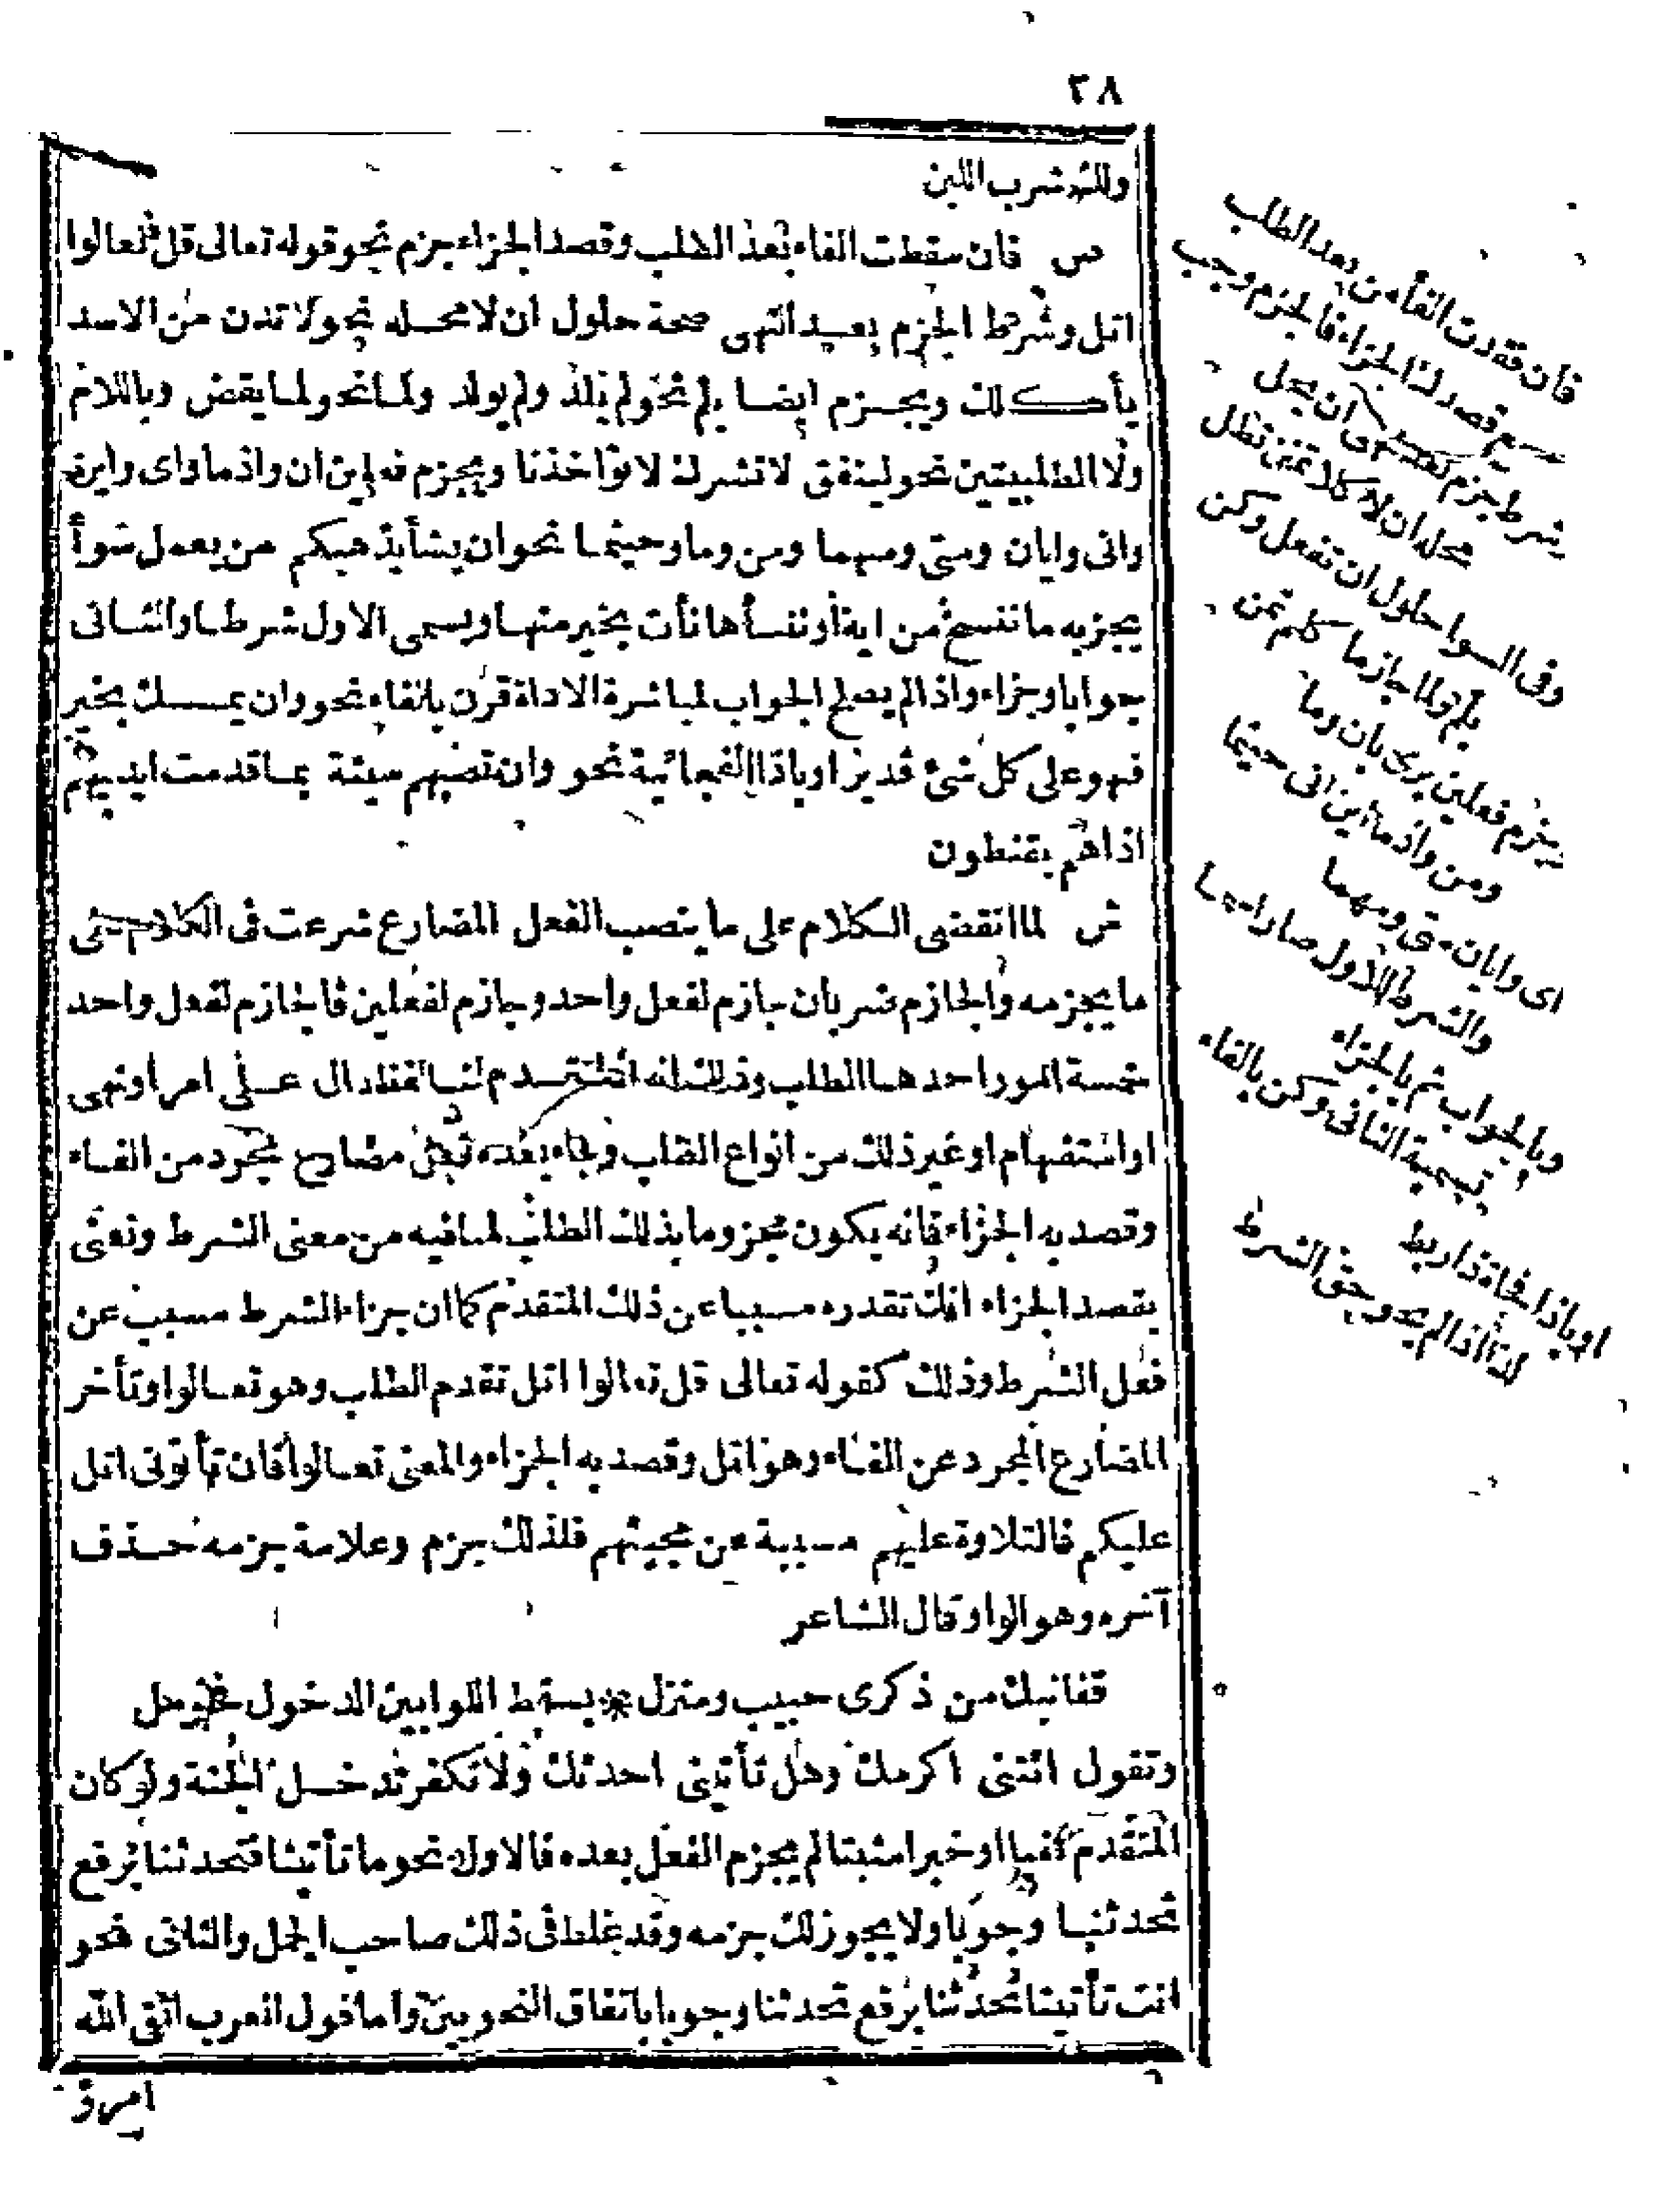 ٢٨
ولك شرب اللبن
ص فان سقطت الفاء بعد الطلب وقصد الجزاء جزم نحو قوله تعالى قل تعالوا
اتل وشرط الجزم بعد النهى صحة حلول ان لا محله نحو لا تدن من الاسد
يأكلك ويجزم ايضا بلم نحو لم يلد ولم يولد ولما نحو لما يقض وباللام
ولا الطلبيتين نحو لينفق لا تشرك لا تؤاخذنا ويجزم فعلين ان واذما واى واين
وانى وايان ومتى ومهما ومن وما وحيثما نحو ان يشأ يذهبكم من يعمل سوأ
يجزبه ما ننسخ من اية أو ننسأها نأت بخير منها ويسمى الاول شرطا والثانى
جوابا وجزاء واذا لم يصلح الجواب لمباشرة الاداة قرن بالفاء نحو وان يمسسك بخير
فهو على كل شئ قدير او باذا الفجائية نحو وان تصبهم سيئة بما قدمت ايديهم
اذا هم يقنطون
ش لما انقضى الكلام على ما ينصب الفعل المضارع شرعت فى الكلام على
ما يجزمه والجازم ضربان جازم لفعل واحد وجازم لفعلين فالجازم لفعل واحد
خمسة امور احدها الطلب وذلك انه اذا تقدم لنا لفظ دال على امر او نهى
او استفهام او غير ذلك من انواع الطلب وجاء بعده فعل مضارع مجرد من الفاء
وقصد به الجزاء فانه يكون مجزوما بذلك الطلب لما فيه من معنى الشرط ونعنى
بقصد الجزاء انك تقدره مسببا عن ذلك المتقدم كما ان جزاء الشرط مسبب عن
فعل الشرط وذلك كقوله تعالى قل تعالوا اتل تقدم الطلب وهو تعالوا وتأخر
المضارع المجرد عن الفاء وهو اتل وقصد به الجزاء والمعنى تعالوا فان تأتونى اتل
عليكم فالتلاوة عليهم مسببة عن مجيئهم فلذلك جزم وعلامة جزمه حذف
آخره وهو الواو قال الشاعر
قفا نبك من ذكرى حبيب ومنزل * بسقط اللوا بين الدخول فحومل
وتقول ائتنى اكرمك وهل تأتينى احدثك ولا تكفر تدخل الجنة ولو كان
المتقدم نفيا او خبرا مثبتا لم يجزم الفعل بعده فالاول نحو ما تأتينا فتحدثنا برفع
تحدثنا وجوبا ولا يجوز لك جزمه وقد غلط فى ذلك صاحب الجمل والثانى نحو
انت تأتينا تحدثنا برفع تحدثنا وجوبا باتفاق النحويين وأما قول العرب اتقى الله
امرؤ
فان فقدت الفأ من بعد الطلب
قصد الجزاء فالجزم وجب
شرط جزم ان يحل
محله ان لا كلا تمنن تظل
وفى السوا حلول ان تفعل وكن
بلم ولما جازما كلم تمن
جزم فعلين يرى بان وما
ومن واذما اين انى حيثما
اى وايان متى ومهما
والشرط الاول صار اسما
وبالجواب ثم بالجزاء
تسمية الثانى وكن بالفاء
او باذا الفجاة ذا ربط
لذا اذا لم يحو حق الشرط